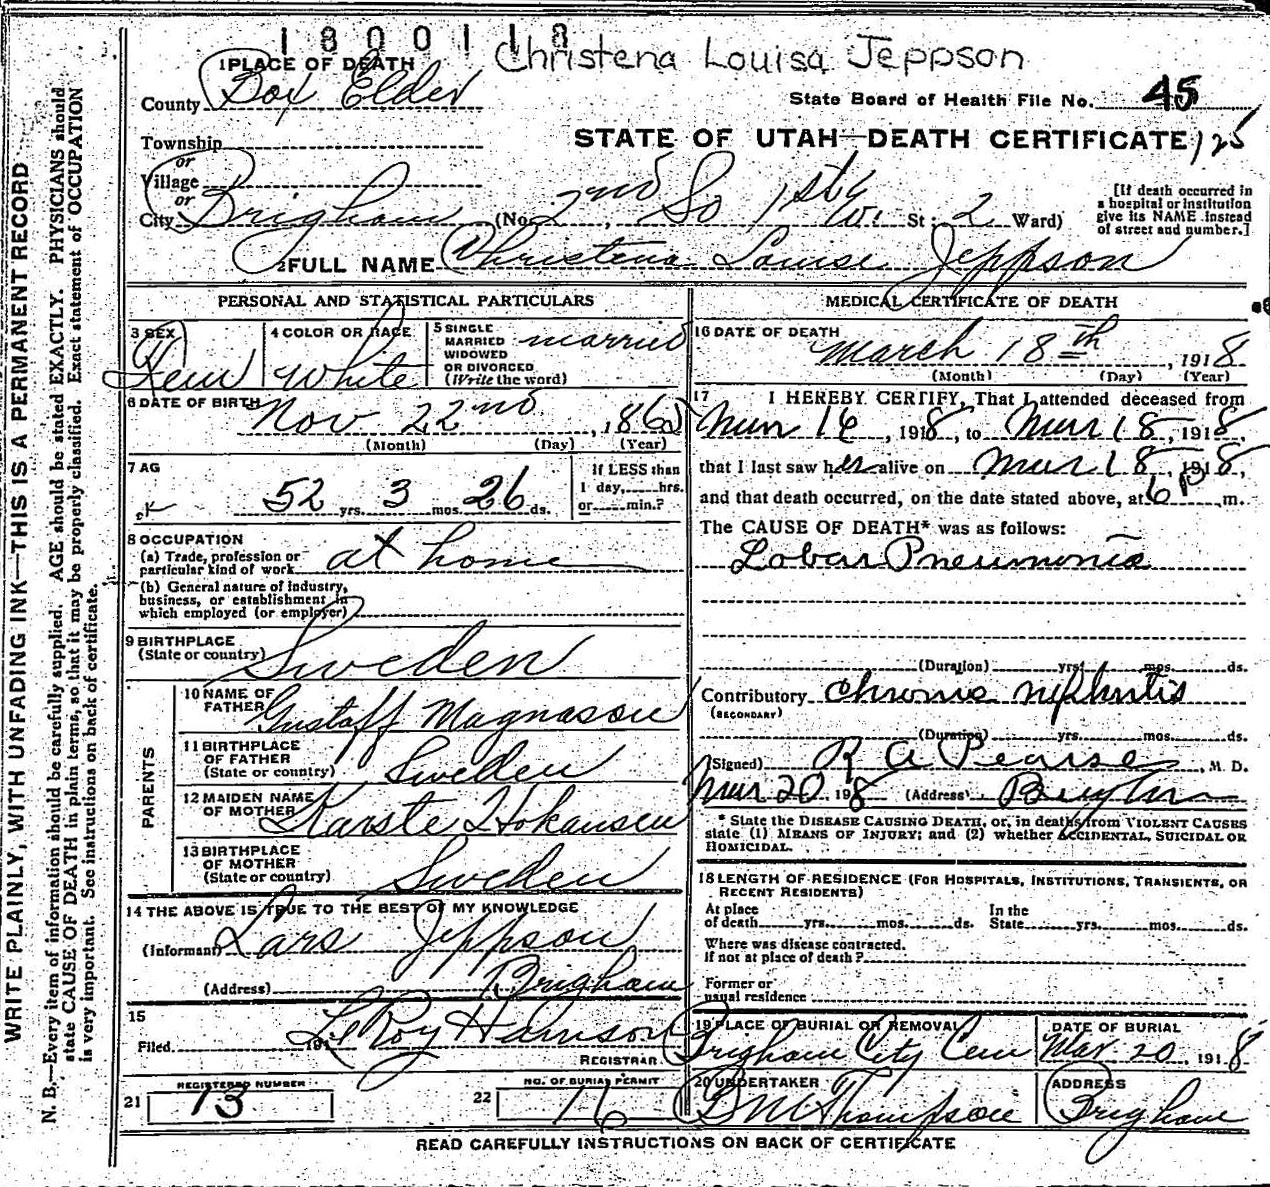 1800118 Christena Louisa Jeppson
1 PLACE OF DEATH
County Box Elder
State Board of Health File No. 45
STATE OF UTAH—DEATH CERTIFICATE 125
Township
or
Village
or
City Brigham (No. 2nd So 1st W. St; 2 Ward)
[If death occurred in a hospital or institution give its NAME instead of street and number.]
2 FULL NAME Christena Louise Jeppson
PERSONAL AND STATISTICAL PARTICULARS
3 SEX Fem
4 COLOR OR RACE White
5 SINGLE MARRIED WIDOWED OR DIVORCED (Write the word) married
6 DATE OF BIRTH Nov 22nd, 1865
(Month) (Day) (Year)
7 AG 52 yrs. 3 mos. 26 ds.
If LESS than 1 day, hrs. or min.?
8 OCCUPATION
(a) Trade, profession or particular kind of work at home
(b) General nature of industry, business, or establishment in which employed (or employer)
9 BIRTHPLACE
(State or country) Sweden
PARENTS
10 NAME OF FATHER Gustaff Magnason
11 BIRTHPLACE OF FATHER (State or country) Sweden
12 MAIDEN NAME OF MOTHER Karste Hokansen
13 BIRTHPLACE OF MOTHER (State or country) Sweden
14 THE ABOVE IS TRUE TO THE BEST OF MY KNOWLEDGE
(Informant) Lars Jeppson
(Address) Brigham
15
Filed 191 LeRoy Hamson
REGISTRAR
21 REGISTERED NUMBER 13
22 NO. OF BURIAL PERMIT 16
MEDICAL CERTIFICATE OF DEATH
16 DATE OF DEATH
March 18th, 1918
(Month) (Day) (Year)
17 I HEREBY CERTIFY, That I attended deceased from
Mar 16, 1918, to Mar 18, 1918,
that I last saw her alive on Mar 18, 1918,
and that death occurred, on the date stated above, at 6 P m.
The CAUSE OF DEATH* was as follows:
Lobar Pneumonia
(Duration) yrs. mos. ds.
Contributory Chronic nephritis
(SECONDARY)
(Duration) yrs. mos. ds.
(Signed) R A Pearse, M. D.
Mar 20 198 (Address) Brigham
* State the DISEASE CAUSING DEATH, or, in deaths from VIOLENT CAUSES
state (1) MEANS OF INJURY; and (2) whether ACCIDENTAL, SUICIDAL OR
HOMICIDAL.
18 LENGTH OF RESIDENCE (FOR HOSPITALS, INSTITUTIONS, TRANSIENTS, OR
RECENT RESIDENTS)
At place of death yrs. mos. ds. In the State yrs. mos. ds.
Where was disease contracted.
if not at place of death?
Former or
usual residence
19 PLACE OF BURIAL OR REMOVAL Brigham City Cem
DATE OF BURIAL Mar 20, 1918
20 UNDERTAKER Thompson
ADDRESS Brigham
READ CAREFULLY INSTRUCTIONS ON BACK OF CERTIFICATE
WRITE PLAINLY, WITH UNFADING INK—THIS IS A PERMANENT RECORD
N. B.—Every item of information should be carefully supplied. AGE should be stated EXACTLY. PHYSICIANS should
state CAUSE OF DEATH in plain terms, so that it may be properly classified. Exact statement of OCCUPATION
is very important. See instructions on back of certificate.